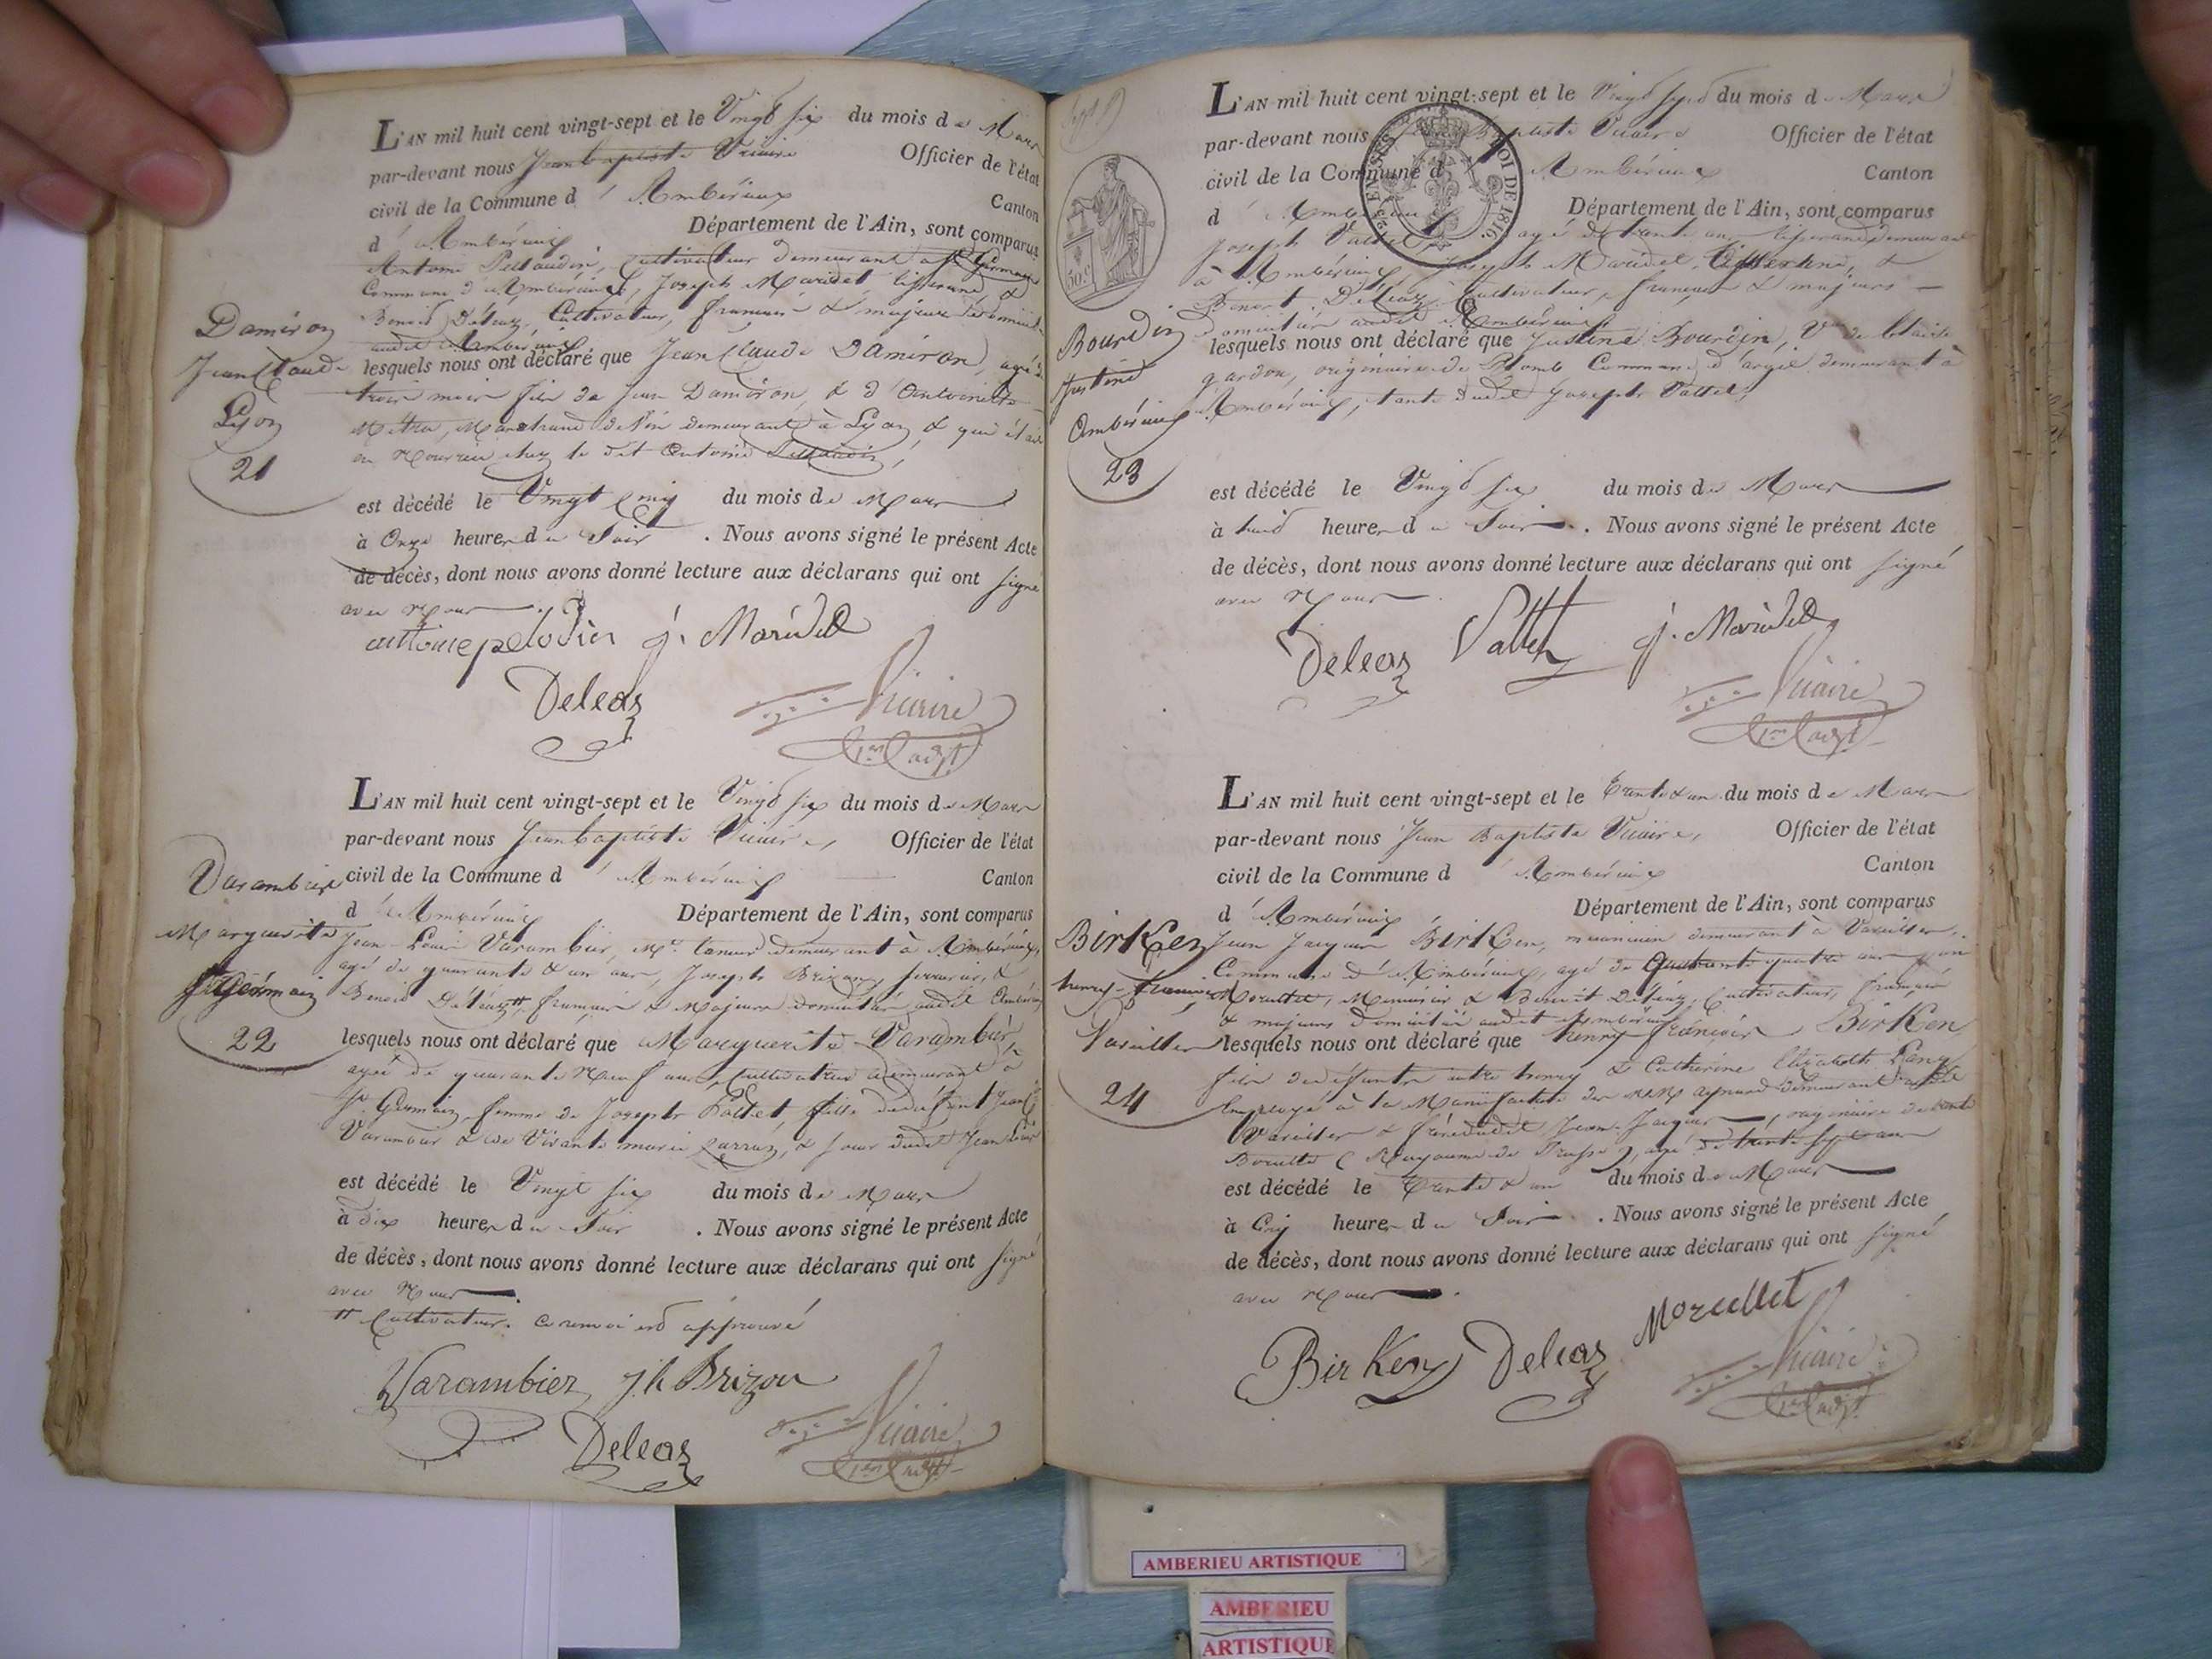 L'AN mil huit cent vingt-sept et le Vingt six du mois de Mars
par-devant nous Jean baptiste Vicaire Officier de l'état
civil de la Commune d' Ambérieux Canton
d' Ambérieux Département de l'Ain, sont comparus
Antoine Pellaudin, Cultivateur demeurant à St Germain
Commune d'Ambérieux, Joseph Maridet, tisserand &
Benoit Déléaz, Cultivateur, français & majeurs domiciliés
audit Ambérieux
Daméron
Jean Claude
Lyon
21
lesquels nous ont déclaré que Jean Claude Daméron, agé de
trois mois fils de Jean Daméron, & d'Antoinette
Métra, Marchand de Vin demeurant à Lyon & qui était
en Nourrice chez le dit Antoine Pellaudin,
est décédé le Vingt cinq du mois de Mars
à Onze heures du Soir . Nous avons signé le présent Acte
de décès, dont nous avons donné lecture aux déclarans qui ont signé
avec Nous
antoine pelodin j. Maridet
Deleaz Vicaire
L'AN mil huit cent vingt-sept et le Vingt six du mois de Mars
par-devant nous Jean baptiste Vicaire, Officier de l'état
civil de la Commune d' Ambérieux Canton
d' Ambérieux Département de l'Ain, sont comparus
Varambier
Marguerite
St Germain
22
Jean Louis Varambier, Md tanneur demeurant à Ambérieux,
agé de quarante & un ans, Joseph Brizon, serrurier, &
Benoit Déléaz # français & Majeurs domiciliés audit Ambérieux
lesquels nous ont déclaré que Marguerite Varambier,
agée de quarante Neuf ans, Cultivatrice demeurant à
St Germain, femme de Joseph, fille de défunt Jean
Varambier & de Vivante marie, & sœur dudit Jean Louis
est décédé le Vingt six du mois de Mars
à dix heures du Soir . Nous avons signé le présent Acte
de décès, dont nous avons donné lecture aux déclarans qui ont signé
avec Nous
# Cultivateur. ce renvoi est approuvé
Varambier J.h Brizon
Deleaz Vicaire
L'AN mil huit cent vingt-sept et le Vingt sept du mois de Mars
par-devant nous Jean Baptiste Vicaire Officier de l'état
civil de la Commune d' Ambérieux Canton
d' Ambérieux Département de l'Ain, sont comparus
LOI DE 1816.
50c
Joseph Vallet, agé de trente ans, tisserand demeurant
à Ambérieux, Joseph Maridet, tisserand, &
Benoit Déléaz, Cultivateur, français & majeurs
domiciliés audit Ambérieux
Bourdin
Justine
Ambérieux
23
lesquels nous ont déclaré que Justine Bourdin, Vve de Claude
gardon, originaire de Blomb Commune d'argil demeurant à
Ambérieux, tante dudit Joseph Vallet,
est décédé le Vingt six du mois de Mars
à huit heures du Soir . Nous avons signé le présent Acte
de décès, dont nous avons donné lecture aux déclarans qui ont signé
avec Nous
Deleaz Vallet j. Maridet
Vicaire
L'AN mil huit cent vingt-sept et le trente & un du mois de Mars
par-devant nous Jean Baptiste Vicaire, Officier de l'état
civil de la Commune d' Ambérieux Canton
d' Ambérieux Département de l'Ain, sont comparus
Birken
henry françois
Vareilles
24
Jean Jacques Birken, mécanicien demeurant à Vareilles,
Commune d'Ambérieux, agé de Quarante quatre ans
Morellet, Menuisier & Benoit Déléaz, Cultivateur, français
& majeurs domiciliés audit Ambérieux
lesquels nous ont déclaré que henry françois Birken
fils de défunts autre henry & Catherine Elizabeth Lang
Employé à la Manufacture des MM aynard demeurant audit
Vareilles & frère dudit Jean-Jacques, originaire de
(Royaume de Prusse), agé de trente sept ans
est décédé le trente & un du mois de Mars
à Cinq heures du Soir . Nous avons signé le présent Acte
de décès, dont nous avons donné lecture aux déclarans qui ont signé
avec Nous
Birken Deleaz Morellet
Vicaire
AMBERIEU ARTISTIQUE
AMBERIEU
ARTISTIQUE